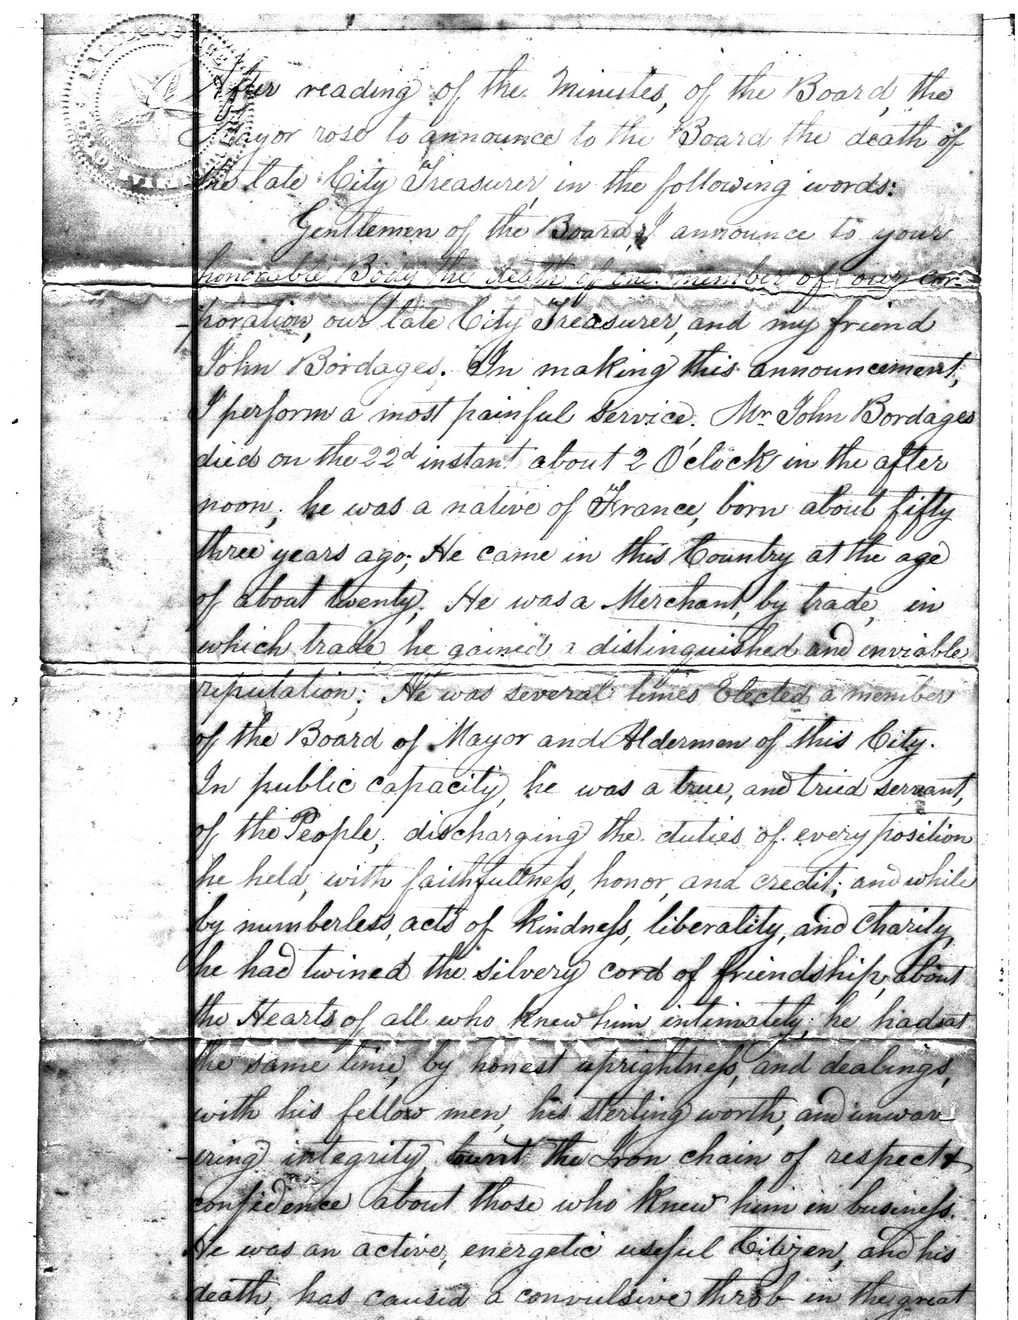 After reading of the Minutes, of the Board, the
Mayor rose to announce to the Board the death of
the late City Treasurer in the following words:
Gentlemen of the Board, I announce to your
honorable Body the death of one member of our cor-
-poration, our late City Treasurer, and my friend
John Bordages. In making this announcement,
I perform a most painful service. Mr. John Bordages
died on the 22d instant about 2 O'clock in the after
noon, he was a native of France, born about fifty
three years ago; He came in this Country at the age
of about twenty. He was a Merchant, by trade, in
which trade, he gained a distinguished and enviable
reputation; He was several times Elected a member
of the Board of Mayor and Aldermen of this City.
In public capacity, he was a true, and tried servant,
of the People, discharging the duties of every position
he held, with faithfullness, honor, and credit; and while
by numberless, acts of kindness, liberality, and Charity,
he had twined the silvery cord of friendship, about
the Hearts of all who knew him intimately; he had at
the same time, by honest uprightness, and dealings,
with his fellow men, his sterling worth, and unwav-
-ering integrity, the Iron chain of respect &
confidence about those who knew him in business.
He was an active, energetic useful Citizen, and his
death, has caused a convulsive throb in the great